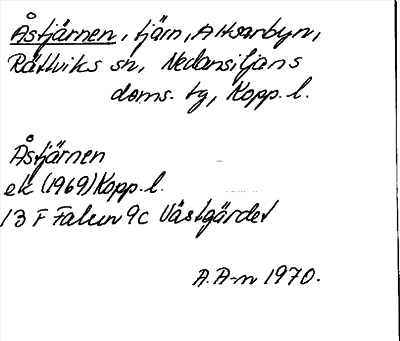 Åstjärnen, tjärn, Altsarbyn,
Rättviks sn, Nedansiljans
doms. tg, Kopp. l.
Åstjärnen
ek (1969) Kopp. l.
13 F Falun 9c Västgärdet
A. A-n 1970.